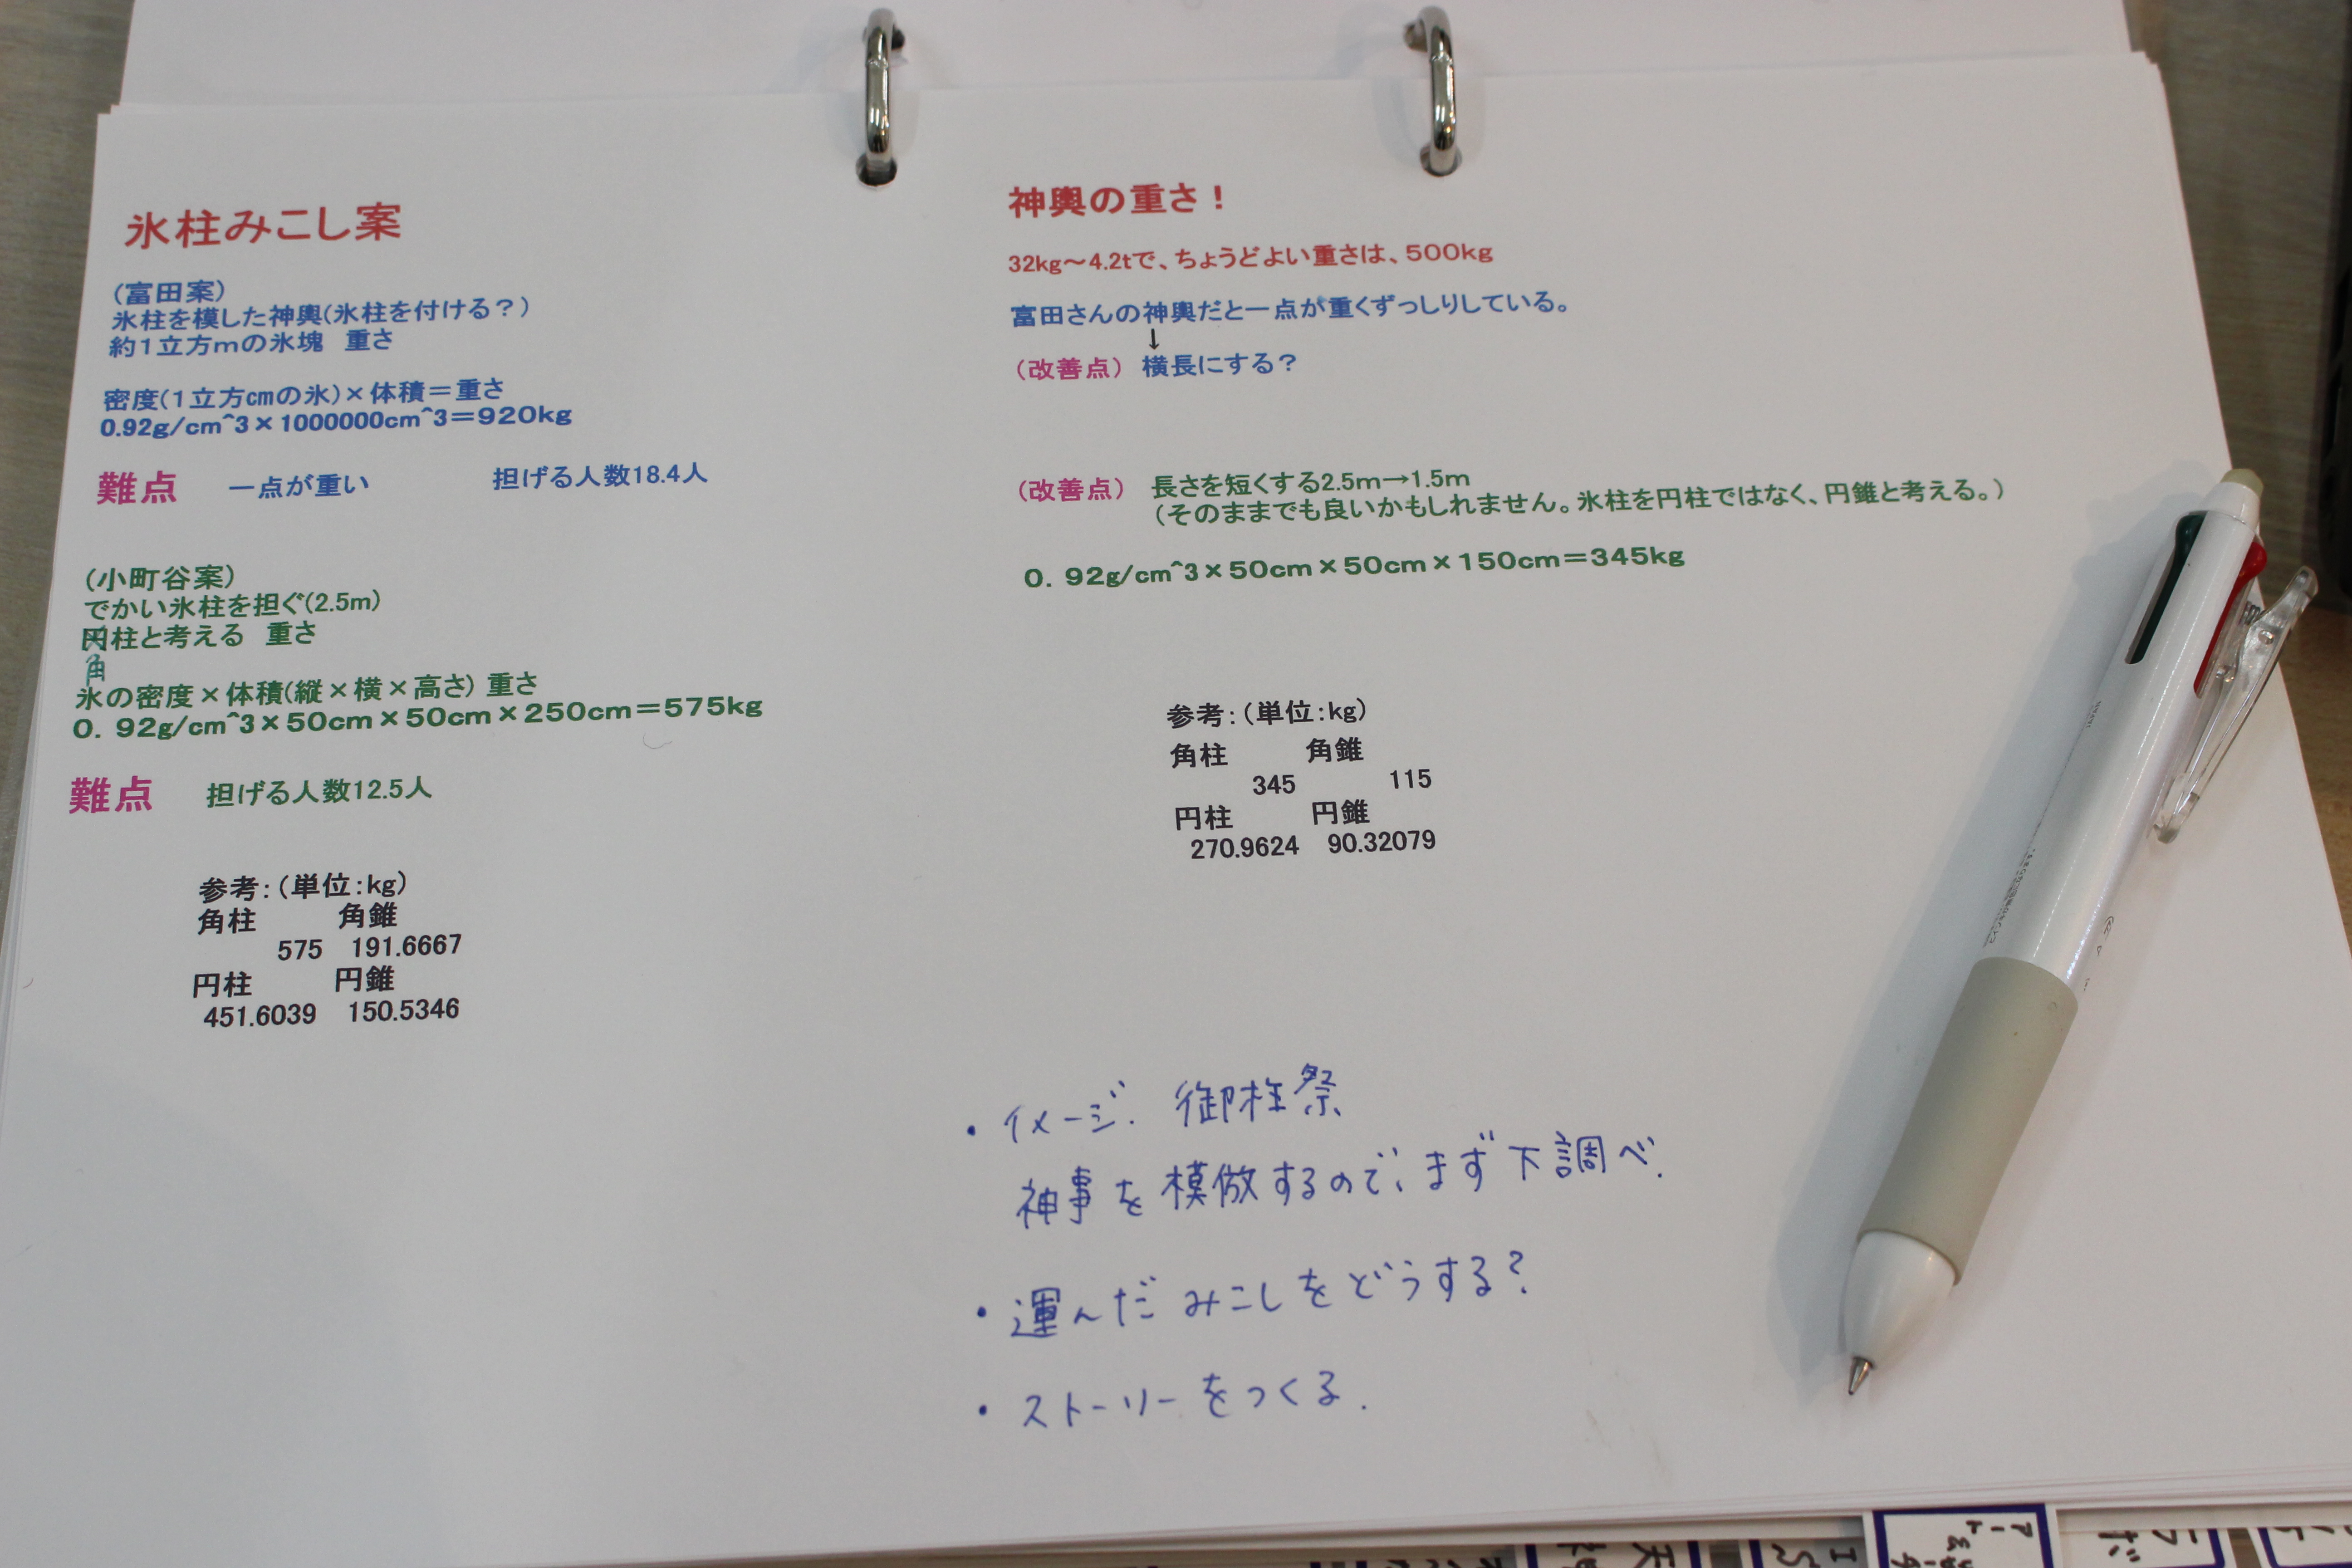 氷柱みこし案
（富田案）
氷柱を模した神輿(氷柱を付ける？）
約１立方ｍの氷塊　重さ
密度(１立方cmの氷)×体積＝重さ
0.92g/cm^3×1000000cm^3＝920kg
難点　一点が重い　担げる人数18.4人
（小町谷案）
でかい氷柱を担ぐ(2.5m)
円柱と考える　重さ
角
氷の密度×体積(縦×横×高さ) 重さ
０．９２g/cm^3×50cm×50cm×250cm＝575kg
難点　担げる人数12.5人
参考：（単位：kg）
角柱　角錐
575　191.6667
円柱　円錐
451.6039　150.5346
神輿の重さ！
32kg～4.2tで、ちょうどよい重さは、500kg
富田さんの神輿だと一点が重くずっしりしている。
↓
（改善点）　横長にする？
（改善点）　長さを短くする2.5m→1.5m
（そのままでも良いかもしれません。氷柱を円柱ではなく、円錐と考える。）
０．９２g/cm^3×50cm×50cm×150cm＝345kg
参考：（単位：kg）
角柱　角錐
345　115
円柱　円錐
270.9624　90.32079
・イメージ．御柱祭
神事を模倣するので、まず下調べ．
・運んだみこしをどうする？
・ストーリーをつくる．